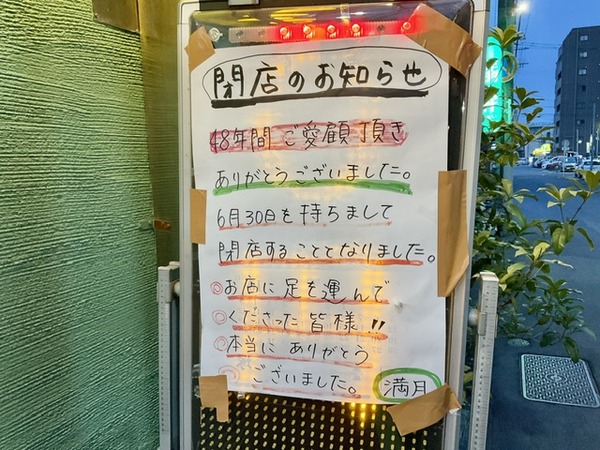 閉店のお知らせ
48年間ご愛顧頂き
ありがとうございました。
6月30日を持ちまして
閉店することとなりました。
◎お店に足を運んで
◎くださった皆様!!
◎本当にありがとう
◎ございました。
満月